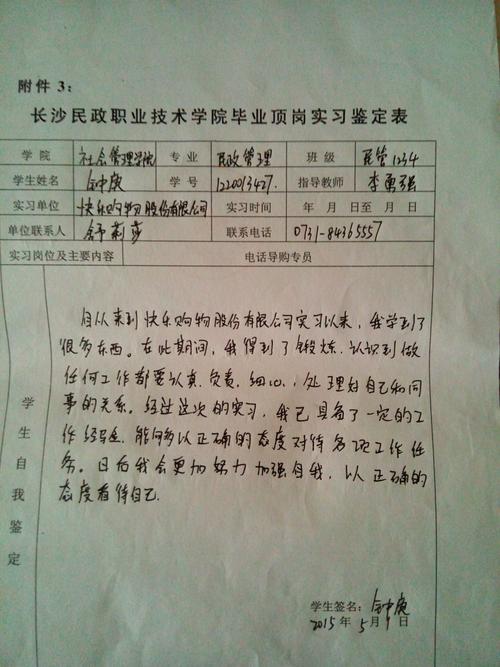 附件 3：
长沙民政职业技术学院毕业顶岗实习鉴定表
学 院 社会管理学院 专 业 民政管理 班 级 民管1234
学生姓名 钟庚 学 号 1220013427. 指导教师 李勇强
实习单位 快乐购物股份有限公司 实习时间 年 月 日至 月 日
单位联系人 舒莉莎 联系电话 0731-84365557
实习岗位及主要内容 电话导购专员
学生自我鉴定
自从来到快乐购物股份有限公司实习以来，我学到了
很多东西。在此期间，我得到了锻炼.认识到做
任何工作都要认真.负责.细心，处理好自己和同
事的关系。经过这次的实习，我已具备了一定的工
作经验，能够以正确的态度对待各项工作任
务。日后我会更加努力加强自我，以正确的
态度看待自己.
学生签名：
2015年 5月 日